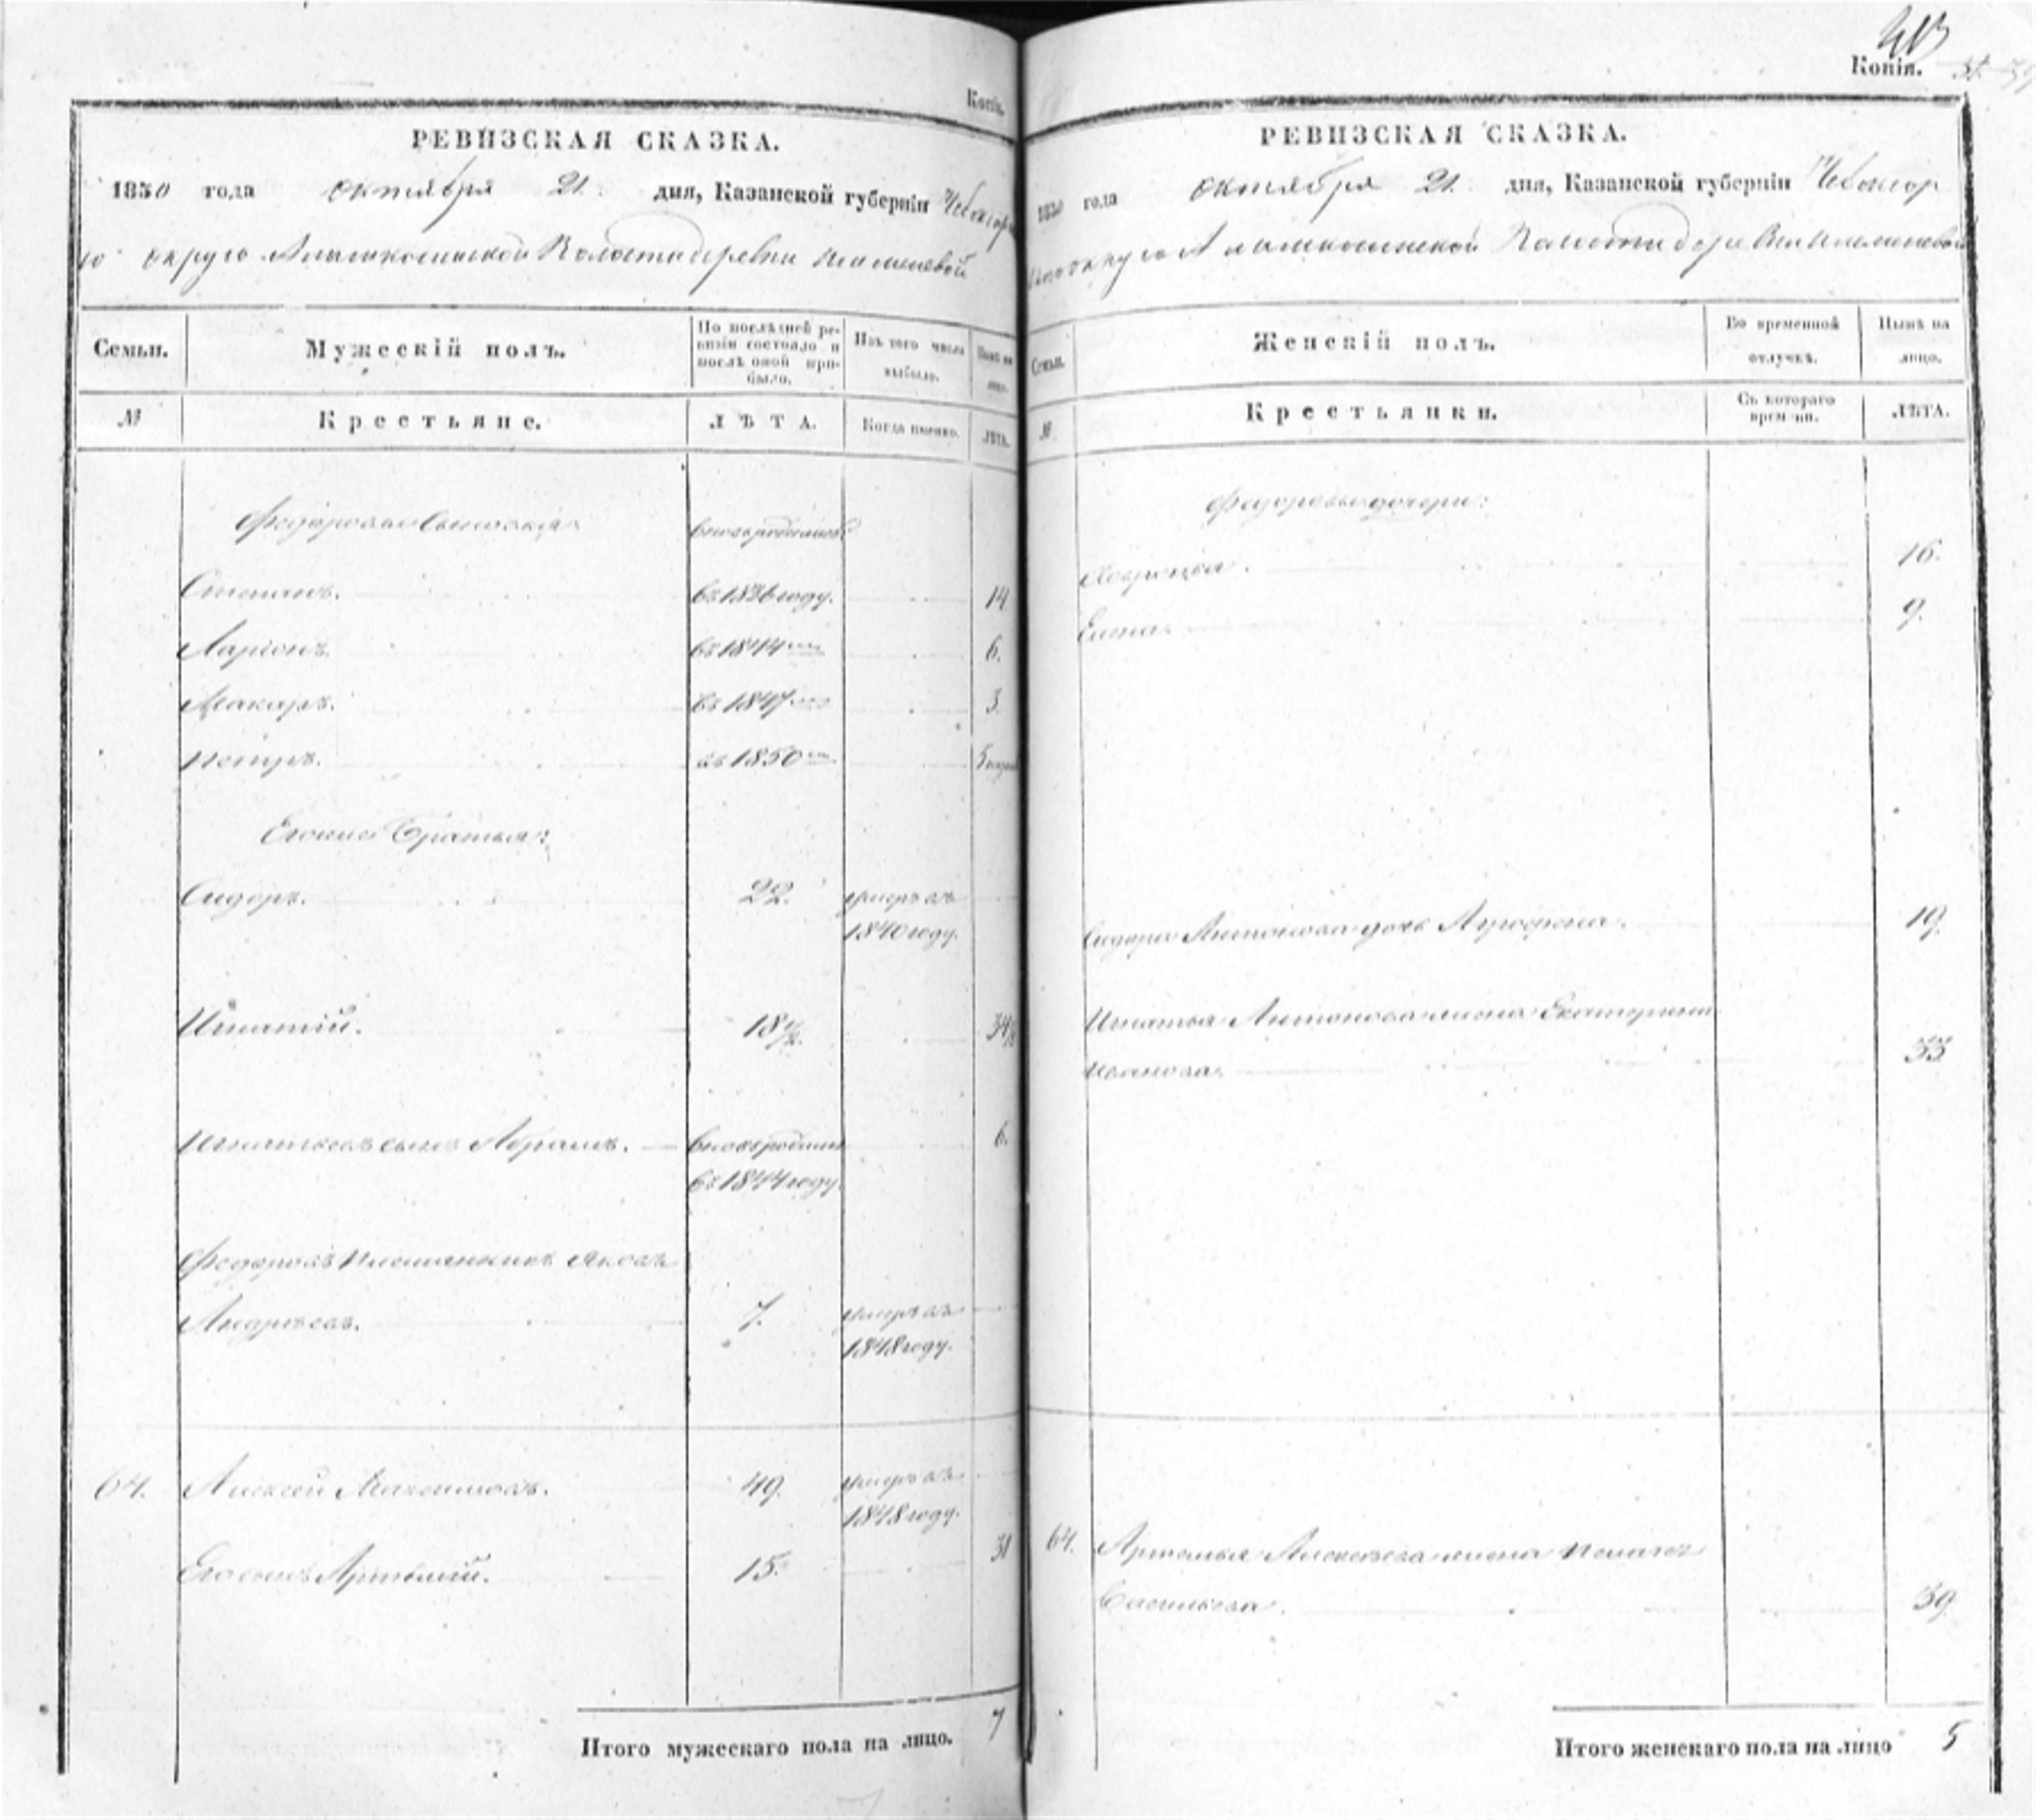 Копія.
РЕВИЗСКАЯ СКАЗКА.
1850 года октября 21 дня, Казанской губерніи Чебоксар
го округа волости деревни
Семьи. Мужескій полъ. По послѣдней ревизіи состояло и послѣ оной прибыло. Изъ того числа выбыло. Нынѣ на лицо.
№ Крестьяне. ЛѢТА. Когда именно. ЛѢТА.
Федоровы сыновья: вновьрожденные
Степанъ. въ 1836 году. 14
Ларіонъ. въ 1844 6.
Макаръ. въ 1847 3.
Петръ. въ 1850 5
Его Братья:
Сидоръ. 22. умеръ въ
1840 году.
Игнатій. 18½. 34½
Игнатьевъ сынъ Абрамъ. 6.
въ 1844 году.
Федоровъ Племянникъ Яковъ
Андреевъ. 7. умеръ въ
1848 году.
64. Алексей Максимовъ. 49. умеръ въ
1848 году.
Его сынъ Артемій. 15. 31
Итого мужескаго пола на лицо. 7
Копія.
РЕВИЗСКАЯ СКАЗКА.
1850 года октября 21 дня, Казанской губерніи Чебоксар
округа волости деревни
Семьи. Женскій полъ. Во временной отлучкѣ. Нынѣ на лицо.
№ Крестьянки. Съ котораго времени. ЛѢТА.
Федоровы дочери:
16.
Елена. 9.
Сидора Антонова дочь 19.
Игнатья Антонова жена Екатерина
Иванова. 33
64. Артемья Алексеева жена
Васильева. 39
Итого женскаго пола на лицо 5